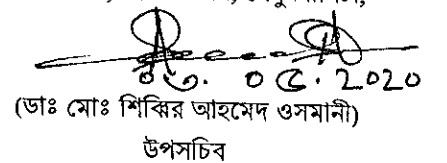 ০৩. ০৫. 2020
(ডাঃ মোঃ শিব্বির আহমেদ ওসমানী)
উপসচিব